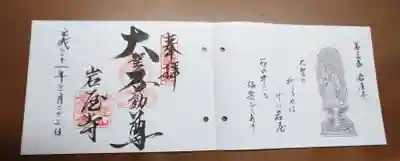 岩屋寺
大聖の
げに岩屋
石の中にも
極楽ぞある
奉拝
大聖不動尊
岩屋寺
平成二十一年三月二十三日